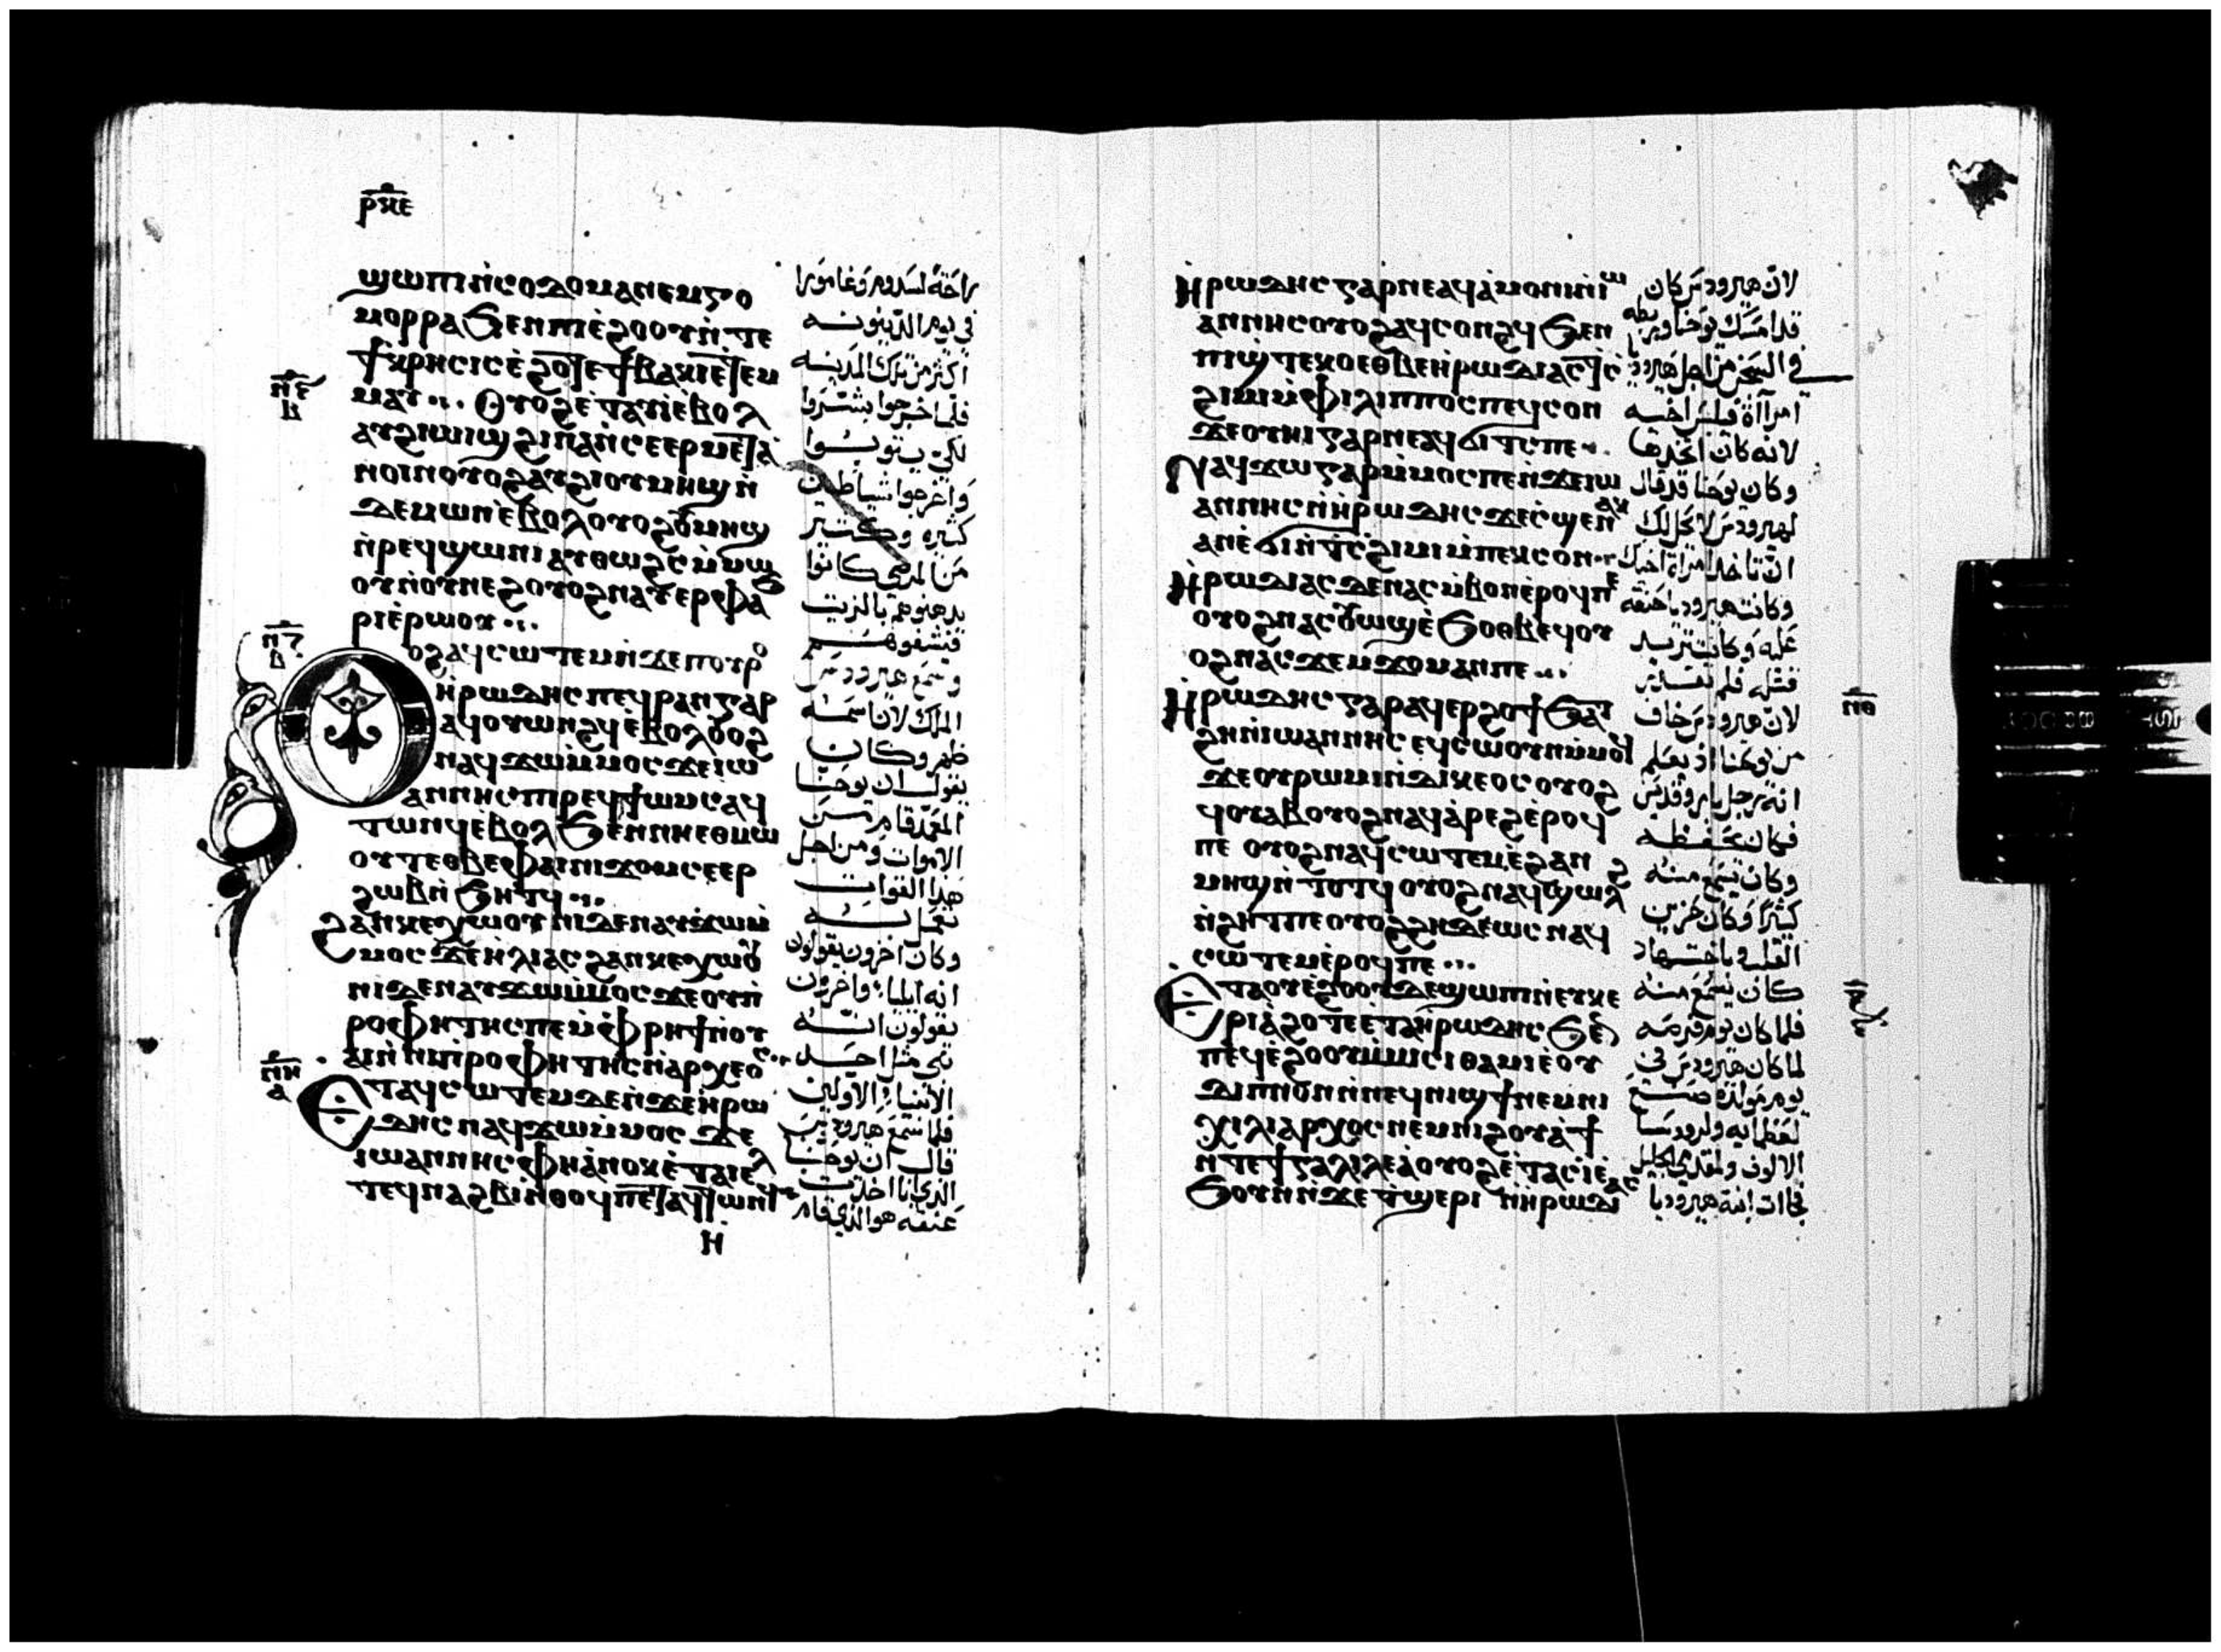 ⲣⲝⲉ
ϣⲱⲡⲓ ⲛ̀ⲥⲟⲇⲟⲙⲁ ⲛⲉⲙ ⲅⲟ
ⲙⲟⲣⲣⲁ ϧⲉⲛ ⲡⲓⲉ̀ϩⲟⲟⲩ ⲛ̀ⲧⲉ
ϯⲕⲣⲏⲥⲓⲥ ⲉ̀ϩⲟⲧⲉ ϯⲃⲁⲕⲓ ⲉⲧⲉⲙ
ⲙⲁⲩ ⲟⲩⲟϩ ⲉ̀ⲧⲁⲩⲓ̀ ⲉ̀ⲃⲟⲗ
ⲁⲩϩⲓⲱⲓϣ ϩⲓⲛⲁ ⲛ̀ⲥⲉⲉⲣⲙⲉⲧⲁ
ⲛⲟⲓⲛ ⲟⲩⲟϩ ⲁⲩϩⲓⲟⲩⲙⲏϣ ⲛ̀
ⲇⲉⲙⲱⲛ ⲉ̀ⲃⲟⲗ ⲟⲩⲟϩ ⲟⲩⲙⲏϣ
ⲛ̀ⲣⲉϥϣⲱⲛⲓ ⲁⲩⲑⲱϩⲥ ⲙ̀ⲙⲱ
ⲟⲩ ⲛ̀ⲟⲩⲛⲉϩ ⲟⲩⲟϩ ⲛⲁⲩⲉⲣⲫⲁϧ
ⲣⲓ ⲉ̀ⲣⲱⲟⲩ
ⲟⲩⲟϩ ⲁϥⲥⲱⲧⲉⲙ ⲛ̀ϫⲉ ⲡⲟⲩⲣⲟ
ⲏ̀ⲣⲱⲇⲏⲥ ⲡⲉϥⲣⲁⲛ ⲅⲁⲣ
ⲁϥⲟⲩⲱⲛϩϥ ⲉ̀ⲃⲟⲗ ⲟⲩⲟϩ
ⲛⲁϥϫⲱ ⲙ̀ⲙⲟⲥ ϫⲉ ⲓⲱ
ⲁⲛⲛⲏⲥ ⲡⲓⲣⲉϥϯⲱⲙⲥ ⲁϥ
ⲧⲱⲛϥ ⲉ̀ⲃⲟⲗ ϧⲉⲛ ⲛⲏⲉⲑⲙⲱ
ⲟⲩⲧ ⲉⲑⲃⲉ ⲫⲁⲓ ⲛⲓϫⲟⲙ ⲥⲉⲉⲣ
ϩⲱⲃ ⲛ̀ϧⲏⲧϥ
ϩⲁⲛⲕⲉⲭⲱⲟⲩⲛⲓ ⲇⲉ ⲛⲁⲩϫⲱ ⲙ̀
ⲙⲟⲥ ϫⲉ ⲏ̀ⲗⲓⲁⲥ ϩⲁⲛⲕⲉⲭⲱⲟⲩ
ⲛⲓ ⲇⲉ ⲛⲁⲩϫⲱ ⲙ̀ⲙⲟⲥ ϫⲉ ⲟⲩⲡ
ⲣⲟⲫⲏⲧⲏⲥ ⲡⲉ ⲙ̀ⲫⲣⲏϯ ⲛ̀ⲟⲩ
ⲁⲓ ⲛ̀ⲛⲓⲡⲣⲟⲫⲏⲧⲏⲥ ⲛ̀ⲁⲣⲭⲉⲟⲥ
ⲉ̀ⲧⲁϥⲥⲱⲧⲉⲙ ⲇⲉ ⲛ̀ϫⲉ ⲏ̀ⲣⲱ
ⲇⲏⲥ ⲛⲁϥϫⲱ ⲙ̀ⲙⲟⲥ ϫⲉ
ⲓⲱⲁⲛⲛⲏⲥ ⲫⲏ ⲁ̀ⲛⲟⲕ ⲉ̀ⲧⲁⲓⲉⲗ
ⲧⲉϥⲛⲁϩⲃⲓ ⲛ̀ⲑⲟϥ ⲡⲉⲧⲁϥⲧⲱⲛϥ
ⲏ
راحة لسدوم وغامورا
في يوم الدينونه
اكثر من تلك المدينه
فلما خرجوا بشروا
لكي يتوبوا
واخرجوا شياطين
كثيره وكثير
من المرضى كانوا
يدهنوهم بالزيت
فيشفوهم
وسمع هيرودس
الملك لان اسمه
ظهر وكان
يقول ان يوحنا
المعمد قام من
الاموات ومن اجل
هذا القوات
تعمل به
وكان اخرون يقولون
انه ايليا واخرون
يقولون انه
نبي مثل احد
الانبياء الاولين
فلما سمع هيرودس
قال ان يوحنا
الذي انا اخذت
عنقه هو الذي قام
ⲏ̀ⲣⲱⲇⲏⲥ ⲅⲁⲣ ⲛⲉ ⲁϥⲁ̀ⲙⲟⲛⲓ ⲛ̀ⲓⲱ
ⲁⲛⲛⲏⲥ ⲟⲩⲟϩ ⲁϥⲥⲟⲛϩϥ ϧⲉⲛ
ⲡⲓϣ̀ⲧⲉⲕⲟ ⲉⲑⲃⲉ ⲏ̀ⲣⲱⲇⲓⲁⲥ ⲧ̀ⲥ
ϩⲓⲙⲓ ⲙ̀ⲫⲓⲗⲓⲡⲡⲟⲥ ⲡⲉϥⲥⲟⲛ
ϫⲉ ⲟⲩⲏⲓ ⲅⲁⲣ ⲛⲉ ⲁϥϭⲓⲧⲥ ⲡⲉ
ⲛⲁϥϫⲱ ⲅⲁⲣ ⲙ̀ⲙⲟⲥ ⲡⲉ ⲛ̀ϫⲉ ⲓⲱ
ⲁⲛⲛⲏⲥ ⲛ̀ⲏ̀ⲣⲱⲇⲏⲥ ϫⲉ ⲥ̀ϣⲉ ⲛⲁⲕ
ⲁⲛ ⲉ̀ϭⲓ ⲛ̀ⲧ̀ⲥ̀ϩⲓⲙⲓ ⲙ̀ⲡⲉⲕⲥⲟⲛ
ⲏ̀ⲣⲱⲇⲓⲁⲥ ⲇⲉ ⲛⲁⲥⲙ̀ⲃⲟⲛ ⲉ̀ⲣⲟϥ ⲡⲉ
ⲟⲩⲟϩ ⲛⲁⲥⲟⲩⲱϣ ⲉ̀ϧⲟⲑⲃⲉϥ ⲟⲩ
ⲟϩ ⲛⲁⲥϫⲉⲙϫⲟⲙ ⲁⲛ ⲡⲉ
ⲏ̀ⲣⲱⲇⲏⲥ ⲅⲁⲣ ⲁϥⲉⲣϩⲟϯ ϧⲁⲧ
ϩⲏ ⲛ̀ⲓⲱⲁⲛⲛⲏⲥ ⲉϥⲥⲱⲟⲩⲛ ⲙ̀ⲙⲟϥ
ϫⲉ ⲟⲩⲣⲱⲙⲓ ⲛ̀ⲇⲓⲕⲉⲟⲥ ⲟⲩⲟϩ
ϥⲟⲩⲁⲃ ⲟⲩⲟϩ ⲛⲁϥⲁ̀ⲣⲉϩ ⲉ̀ⲣⲟϥ
ⲡⲉ ⲟⲩⲟϩ ⲛⲁϥⲥⲱⲧⲉⲙ ⲉ̀ϩⲁⲛ
ⲙⲏϣ ⲛ̀ⲧⲟⲧϥ ⲟⲩⲟϩ ⲛⲁϥϣⲱⲗϩ
ⲛ̀ϩⲏⲧ ⲡⲉ ⲟⲩⲟϩ ϩⲏⲇⲉⲱⲥ ⲛⲁϥ
ⲥⲱⲧⲉⲙ ⲉ̀ⲣⲟϥ ⲡⲉ
ⲉ̀ⲧⲁ ⲟⲩⲉ̀ϩⲟⲟⲩ ⲇⲉ ϣⲱⲡⲓ ⲛ̀ⲉⲩⲕⲉ
ⲣⲓⲁ̀ ϩⲟⲧⲉ ⲉ̀ⲧⲁ ⲏ̀ⲣⲱⲇⲏⲥ ϧⲉⲛ
ⲡⲉϥⲉ̀ϩⲟⲟⲩ ⲙ̀ⲙⲓⲥⲓ ⲑⲁⲙⲓⲉ̀ ⲟⲩ
ⲇⲓⲡⲛⲟⲛ ⲛ̀ⲛⲉϥⲛⲓϣϯ ⲛⲉⲙ ⲛⲓ
ⲭⲓⲗⲓⲁⲣⲭⲟⲥ ⲛⲉⲙ ⲛⲓϩⲟⲩⲁ̀ϯ
ⲛ̀ⲧⲉ ϯⲅⲁⲗⲓⲗⲉⲁ̀ ⲟⲩⲟϩ ⲉ̀ⲧⲁⲥⲓ̀ ⲉ̀
ϧⲟⲩⲛ ⲛ̀ϫⲉ ⲧ̀ϣⲉⲣⲓ ⲛ̀ⲏ̀ⲣⲱⲇⲓⲁⲥ
لان هيرودس كان
قد امسك يوحنا وربطه
في السجن من اجل هيروديا
امرأة فيلبس اخيه
لانه كان اتخذها
وكان يوحنا قد قال
لهيرودس لا يحل لك
ان تاخذ امراة اخيك
وكانت هيروديا حنقه
عليه وكانت تريد
قتله فلم تقدر
لان هيرودس خاف
من يوحنا اذ يعلم
انه رجل بار وقديس
فكان يحفظه
وكان يسمع منه
كثيرا وكان حزين
القلب وباجتهاد
كان يسمع منه
فلما كان يوم فرصه
لما كان هيرودس في
يوم مولده صنع
لعظمايه ولروسا
الالوف ولمقدمي الجليل
فجات ابنة هيروديا